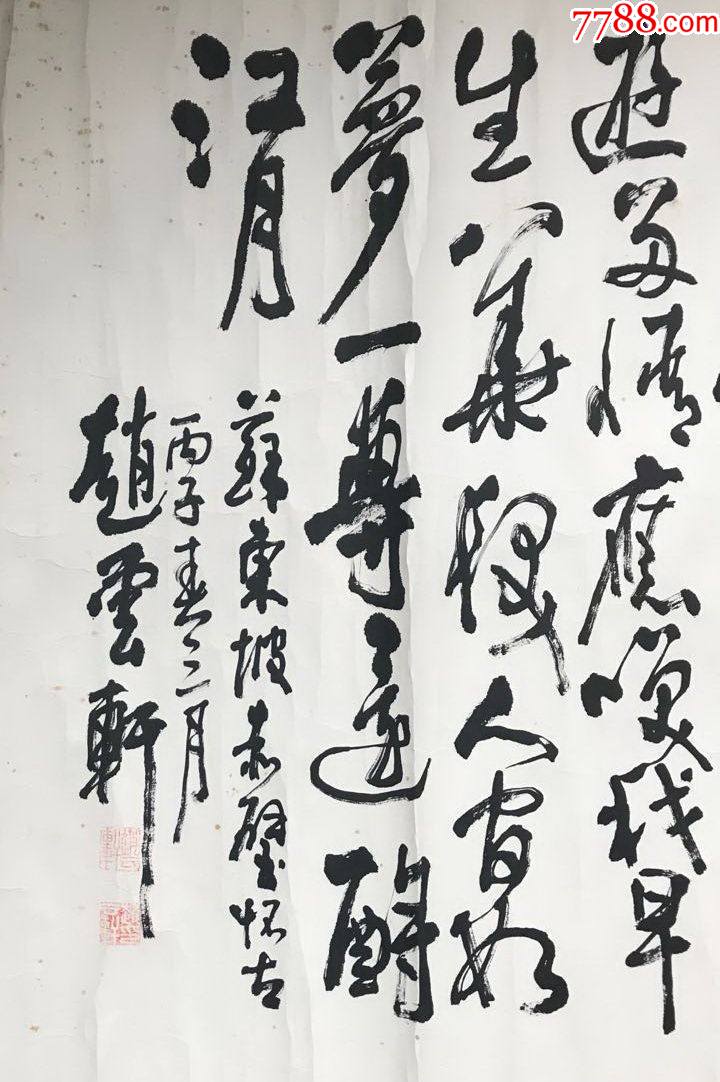 7788.com
遊多情應笑我早
生華髮人間如
夢一尊還酹
江月
蘇東坡赤壁怀古
丙子春三月
趙雲軒